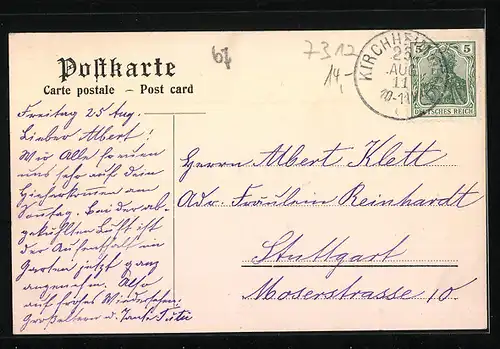 67
7312
14,-
Postkarte
Carte postale – Post card
KIRCHHEIM
25
AUG
11
10-11
5 5
DEUTSCHES REICH
Freitag 25 Aug.
Lieber Albert!
Wir Alle freuen
uns sehr auf dein
Hieherkommen am
Sonntag. Bei der ab-
gekühlten Luft ist
der Aufenthalt im
Garten jetzt ganz
angenehm. Also
auf frohes Wiedersehen,
Großeltern u. Tante
Herrn Albert Klett
Adr Fräulein Reinhardt
Stuttgart
Moserstrasse 10